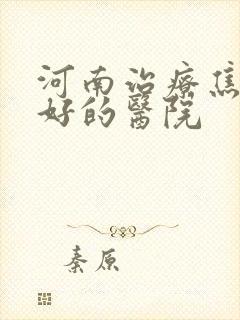 河南治療焦
好的醫院
秦原